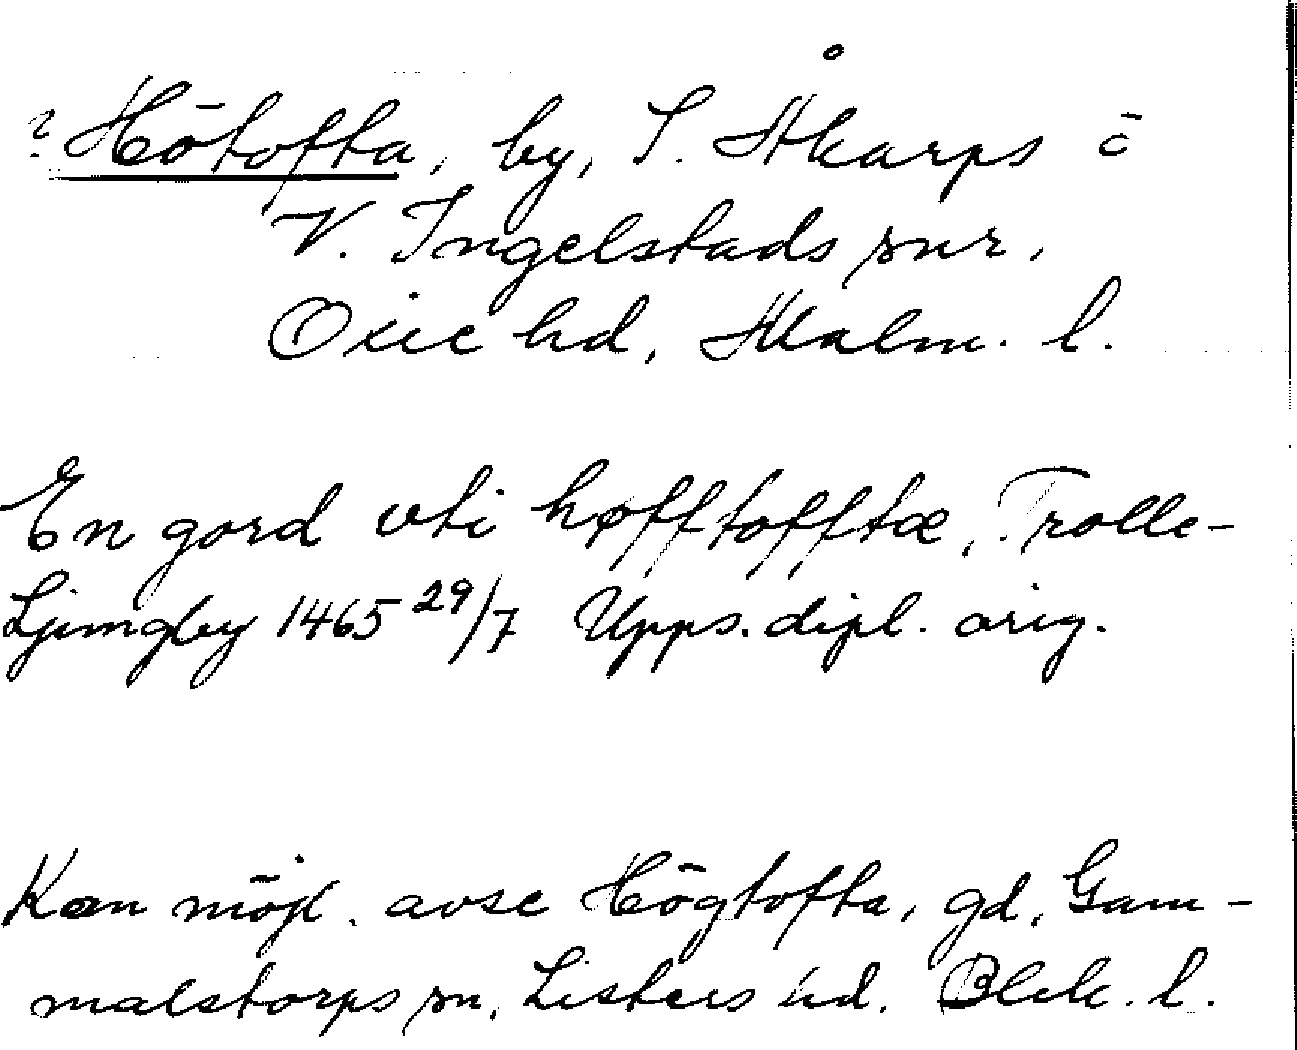 ? Hötofta, by, S. Åkarps o
V. Ingelstads snr,
Oxie hd, Malm. l.
En gord vti høfftofftæ, Trolle-
Ljungby 1465 29/7 Upps. dipl. orig.
Kan möjl. avse Högtofta, gd, Gam-
malstorps sn, Listers hd. Blek. l.